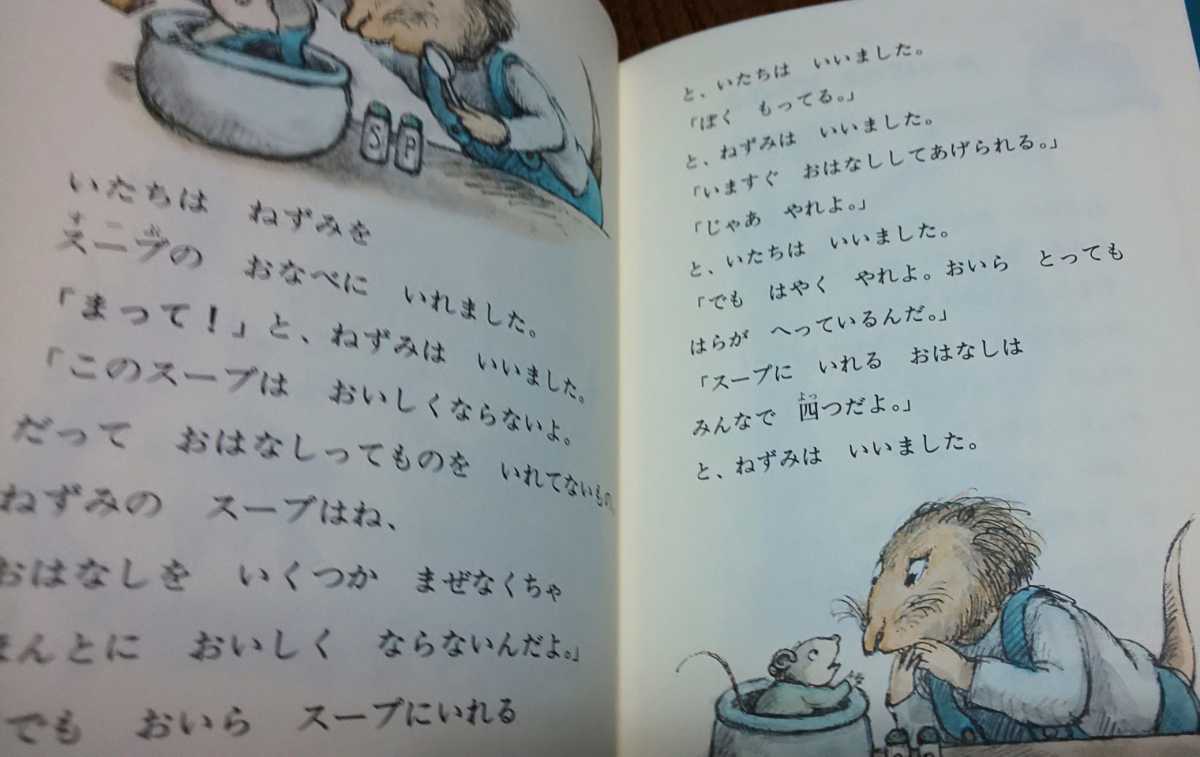 S P
いたちは　ねずみを
スープの　おなべに　いれました。
「まって！」と、ねずみは　いいました。
「このスープは　おいしくならないよ。
だって　おはなしってものを　いれてないもの。
ねずみの　スープはね、
おはなしを　いくつか　まぜなくちゃ
ほんとに　おいしく　ならないんだよ。」
でも　おいら　スープにいれる
と、いたちは　いいました。
「ぼく　もってる。」
と、ねずみは　いいました。
「いますぐ　おはなししてあげられる。」
「じゃあ　やれよ。」
と、いたちは　いいました。
「でも　はやく　やれよ。おいら　とっても
はらが　へっているんだ。」
「スープに　いれる　おはなしは
みんなで　四つだよ。」
と、ねずみは　いいました。